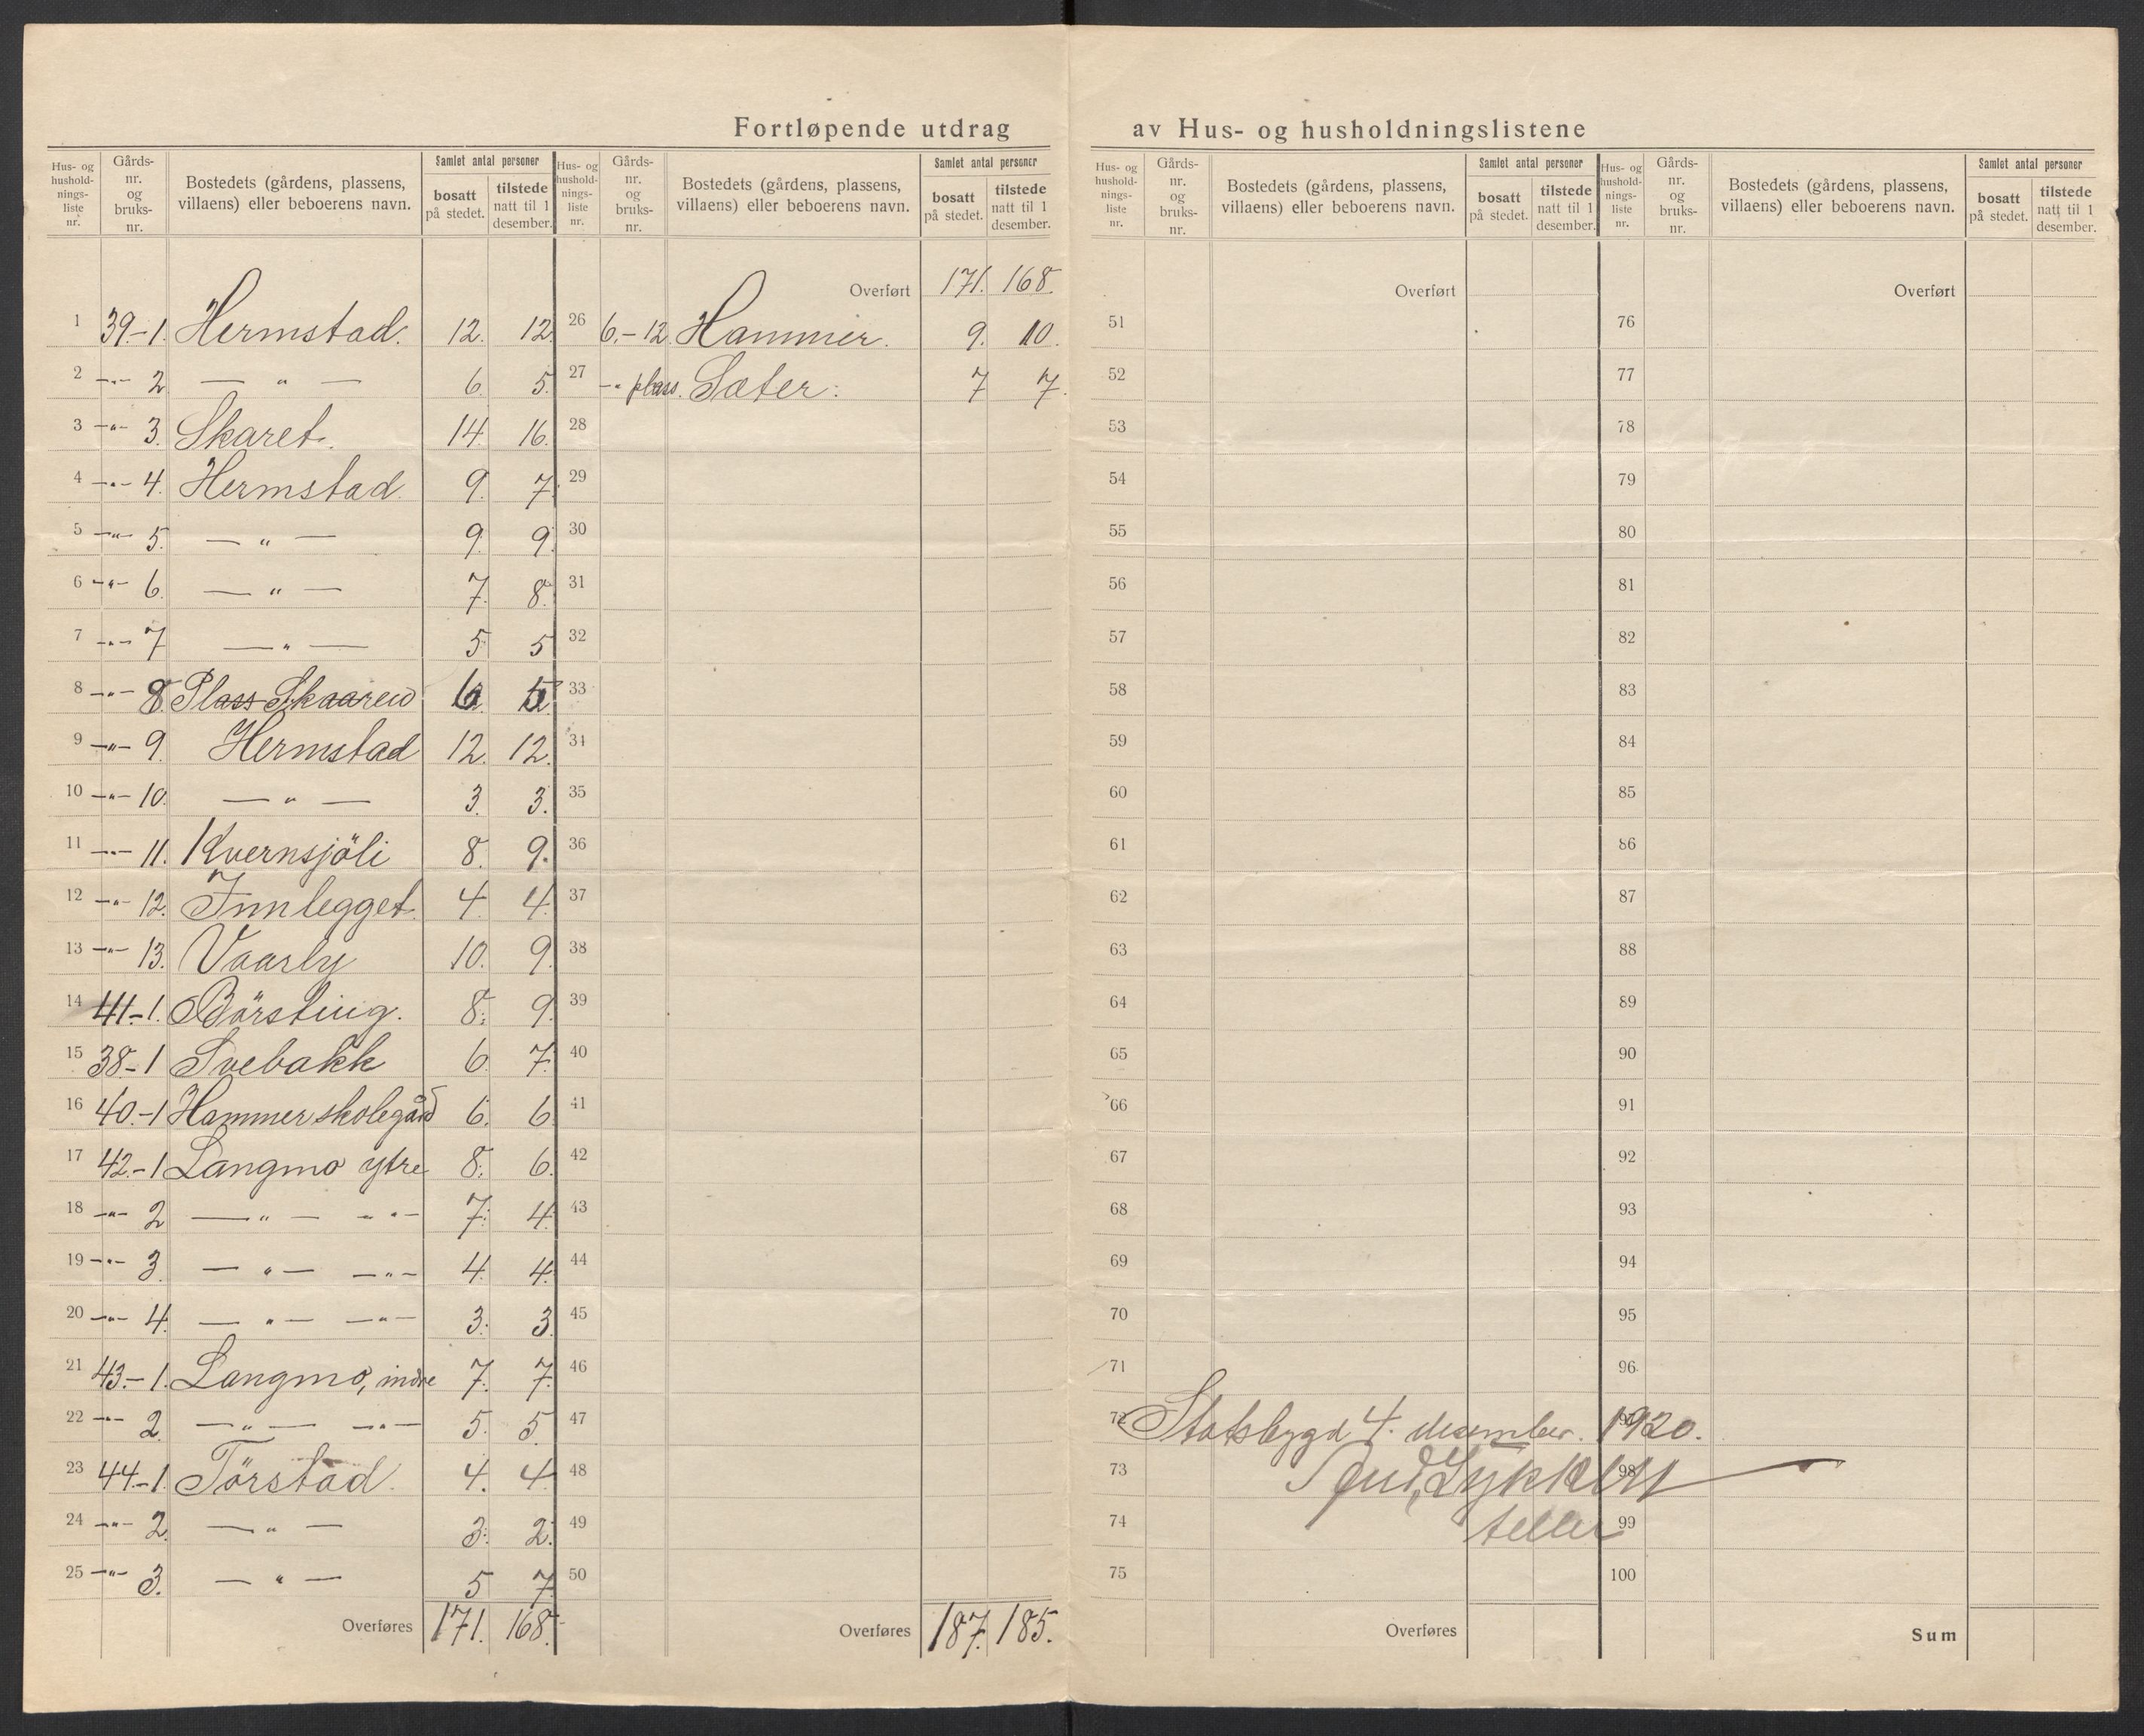 Fortløpende utdrag av Hus- og husholdningslistene
Hus- og hushold-nings-liste nr. Gårds-nr. og bruks-nr. Bostedets (gårdens, plassens, villaens) eller beboerens navn. Samlet antal personer bosatt på stedet. tilstede natt til 1 desember.
1 39.-1. Hermstad. 12. 12.
2 —"— 2. — " — 6. 5.
3 —"— 3. Skaret. 14. 16.
4 —"— 4. Hermstad. 9. 7.
5 —"— 5. — " — 9. 9.
6 —"— 6. — " — 7. 8.
7 —"— 7 — " — 5. 5
8 —"— 8. Plass Skaaren
9 —"— 9. Hermstad 12. 12.
10 —"— 10. — " — 3. 3.
11 —"— 11. Kvernsjöli 8. 9.
12 —"— 12. Innlegget. 4. 4.
13 —"— 13. Vaarly 10. 9.
14 41-1. Börsting. 8. 9.
15 38-1 Svebakk 6. 7.
16 40.-1 Hammer skolegård 6. 6.
17 42.-1 Langmo ytre 8. 6.
18 —"— 2 — " — —"— 7. 4.
19 —"— 3. — " — —"— 4. 4.
20 —"— 4. — " — —"— 3. 3.
21 43.-1. Langmo, indre 7. 7.
22 —"— 2. — " — —"— 5. 5.
23 44-1. Törstad. 4. 4.
24 —"— 2. — " — 3. 2.
25 —"— 3. — " — 5 7.
Overføres 171. 168.
Hus- og hushold-nings-liste nr. Gårds-nr. og bruks-nr. Bostedets (gårdens, plassens, villaens) eller beboerens navn. Samlet antal personer bosatt på stedet. tilstede natt til 1 desember.
Overført 171. 168.
26 6.-12. Hammer. 9. 10.
27 —" plass. Sæter. 7 7.
28
29
30
31
32
33
34
35
36
37
38
39
40
41
42
43
44
45
46
47
48
49
50
Overføres 187. 185.
Hus- og hushold-nings-liste nr. Gårds-nr. og bruks-nr. Bostedets (gårdens, plassens, villaens) eller beboerens navn. Samlet antal personer bosatt på stedet. tilstede natt til 1 desember.
Overført
51
52
53
54
55
56
57
58
59
60
61
62
63
64
65
66
67
68
69
70
71
72 Statsbygd 4. desember. 1920.
73
74 teller
75
Overføres
Hus- og hushold-nings-liste nr. Gårds-nr. og bruks-nr. Bostedets (gårdens, plassens, villaens) eller beboerens navn. Samlet antal personer bosatt på stedet. tilstede natt til 1 desember.
Overført
76
77
78
79
80
81
82
83
84
85
86
87
88
89
90
91
92
93
94
95
96
97
98
99
100
Sum